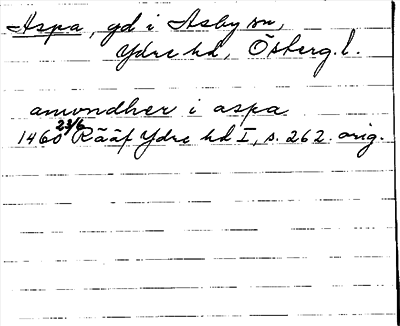 Aspa, gd i Asby sn,
Ydre hd, Österg. l.
amvndher i aspa
1460 23/6 Rääf Ydre hd I, s. 262. orig.